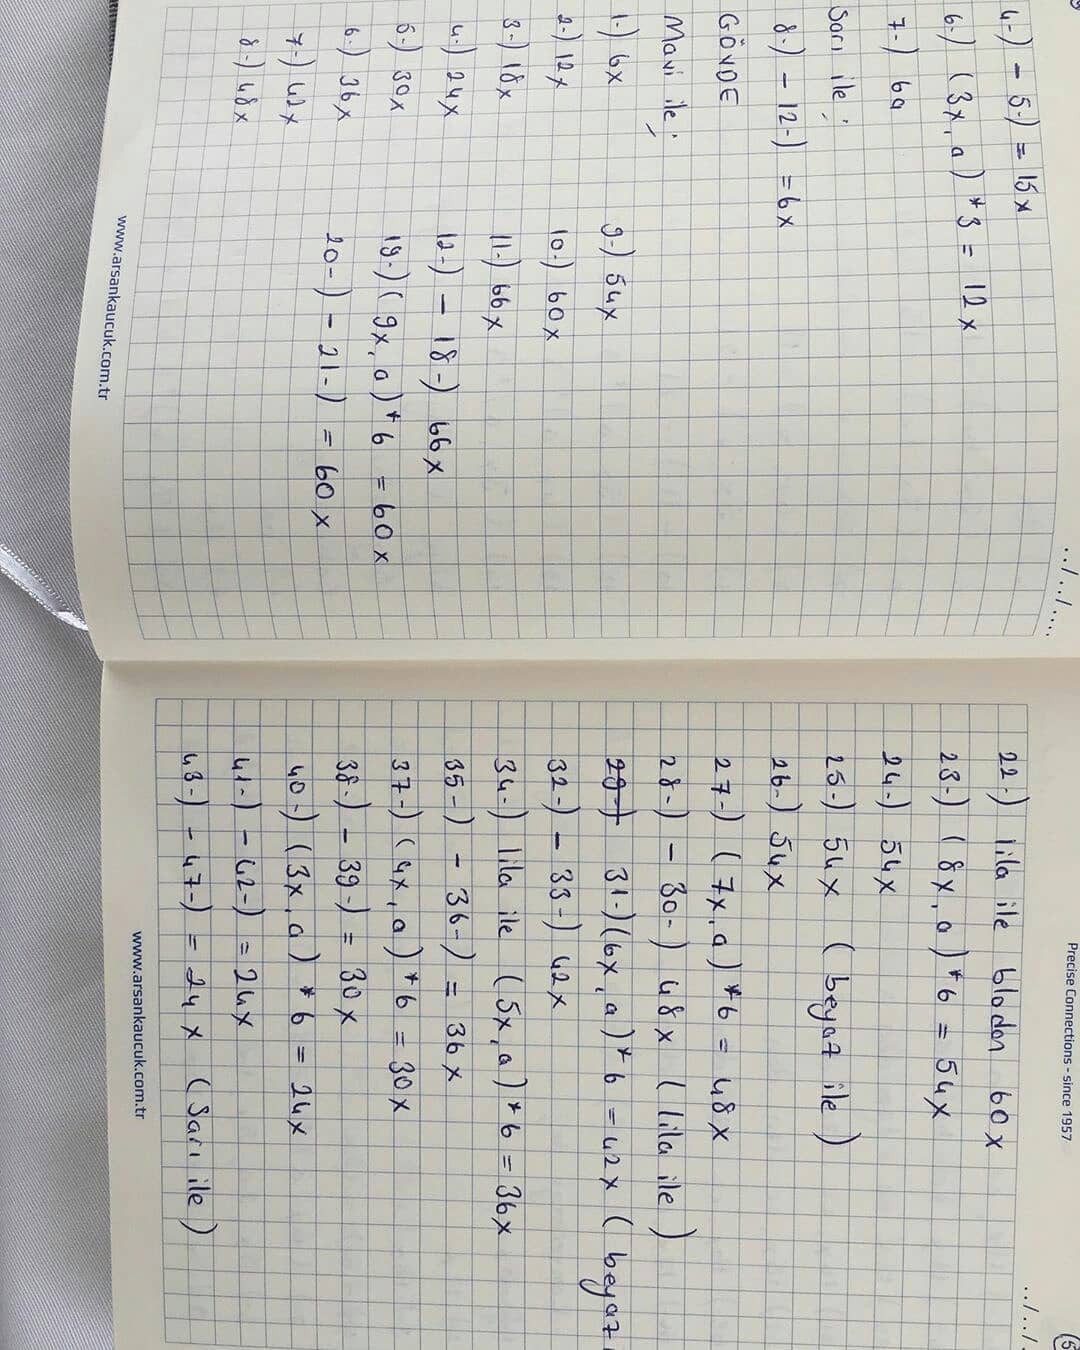 4-) - 5-) = 15x
6-) (3x, a) * 3 = 12x
7-) 6a
Sarı ile;
8-) - 12-) = 6x
GÖVDE
Mavi ile;
1-) 6x
2-) 12x
3-) 18x
4-) 24x
5-) 30x
6-) 36x
7-) 42x
8-) 48x
9-) 54x
10-) 60x
11-) 66x
12-) - 18-) 66x
19-) (9x, a) * 6 = 60x
20-) - 21-) = 60x
../../....
www.arsankaucuk.com.tr
Precise Connections - since 1957
../../
22-) lila ile blodan 60x
23-) (8x, a) * 6 = 54x
24-) 54x
25-) 54x (beyaz ile)
26-) 54x
27-) (7x, a) * 6 = 48x
28-) - 30-) 48x (lila ile)
29-) 31-) (6x, a) * 6 = 42x (beyaz
32-) - 33-) 42x
34-) lila ile (5x, a) * 6 = 36x
35-) - 36-) = 36x
37-) (4x, a) * 6 = 30x
38-) - 39-) = 30x
40-) (3x, a) * 6 = 24x
41-) - 42-) = 24x
43-) - 47-) = 24x (Sarı ile)
www.arsankaucuk.com.tr